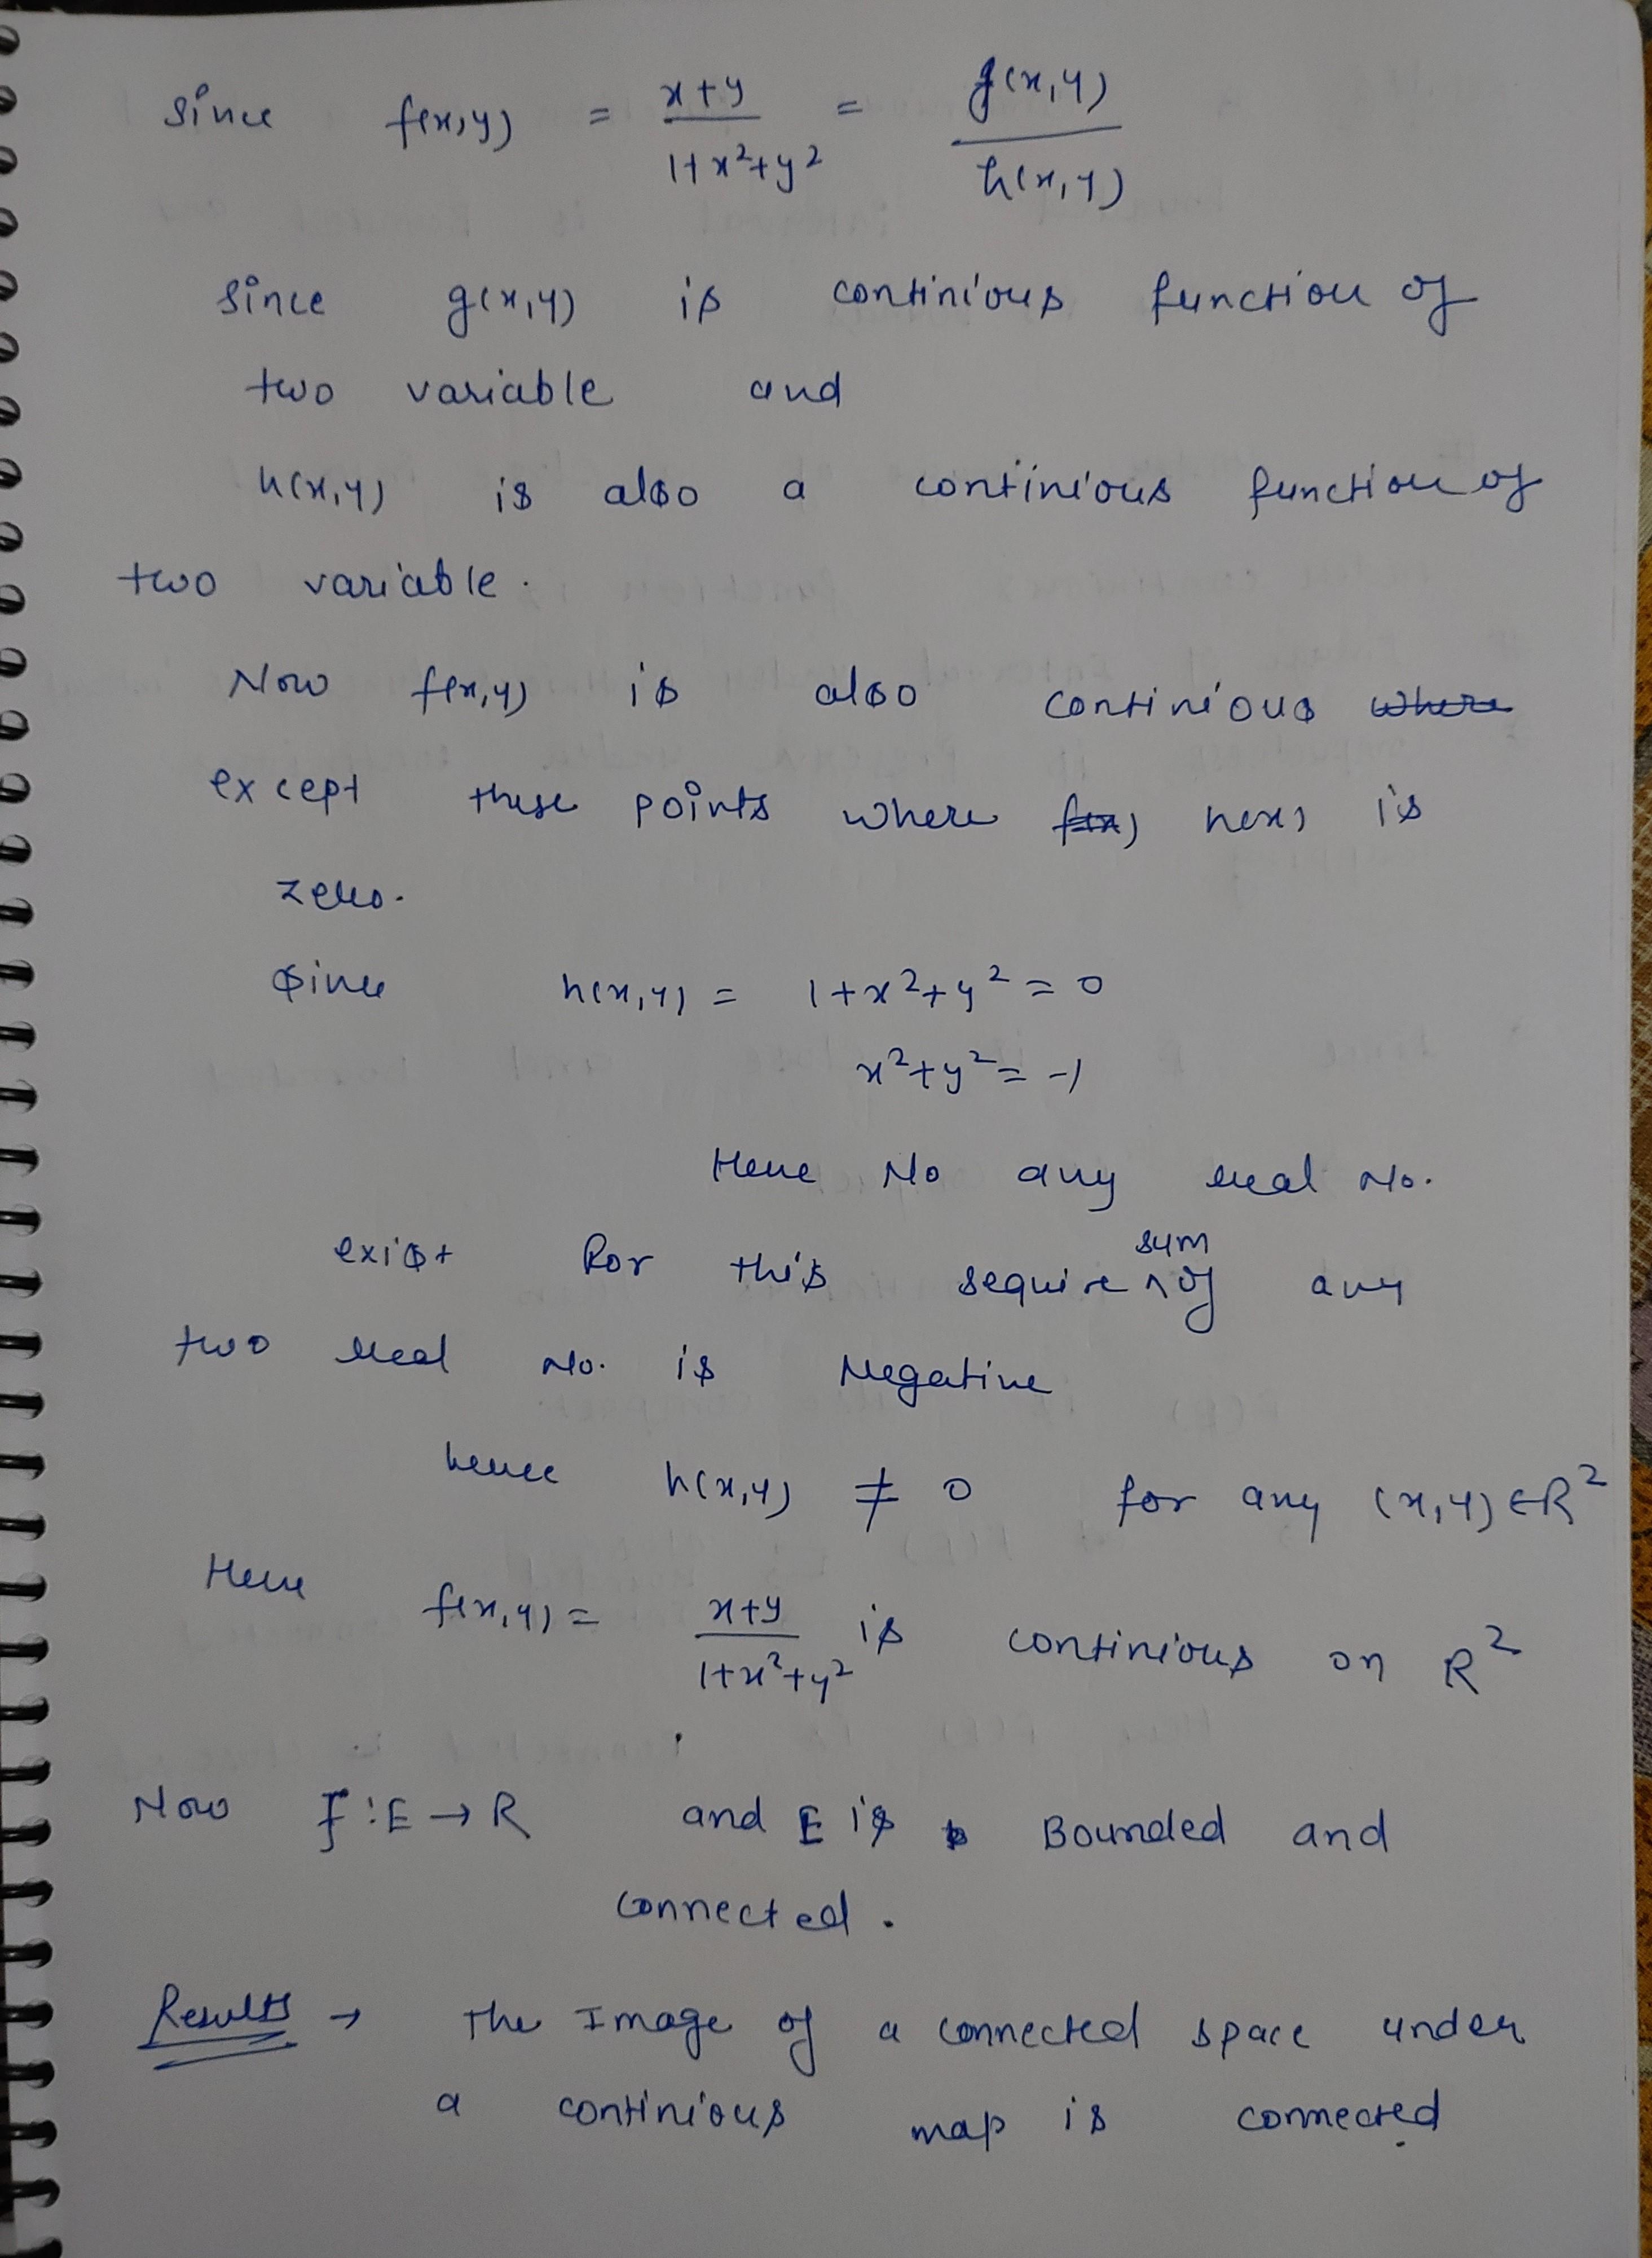 since f(x,y) = x+y / 1+x²+y² = g(x,y) / h(x,y)
since g(x,y) is continious function of
two variable and
h(x,y) is also a continious function of
two variable.
Now f(x,y) is also continious where
except these points where f(x) h(x) is
zero.
since h(x,y) = 1+x²+y² = 0
x²+y² = -1
Here No any real No.
exist for this sequire sum of any
two real No. is Negative
hence h(x,y) ≠ 0 for any (x,y) ∈ R²
Here f(x,y) = x+y / 1+x²+y² is continious on R²
Now F : E → R and E is Bounded and
connected.
Results → The Image of a connected space under
a continious map is connected